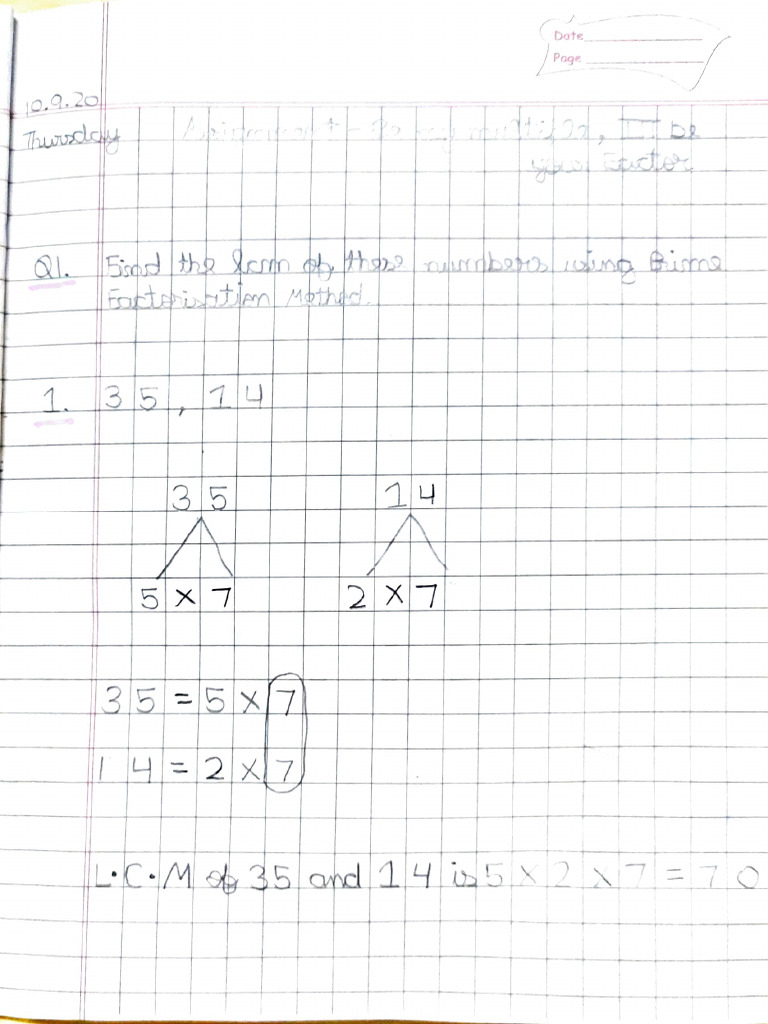 Date
Page
10.9.20
Thursday
Assignment - Be my multiple, I'll be
your Factor
Q1. Find the lcm of these numbers using Prime
Factorisation Method.
1. 35, 14
35 14
5 x 7 2 x 7
35 = 5 x 7
14 = 2 x 7
L.C.M of 35 and 14 is 5 x 2 x 7 = 70